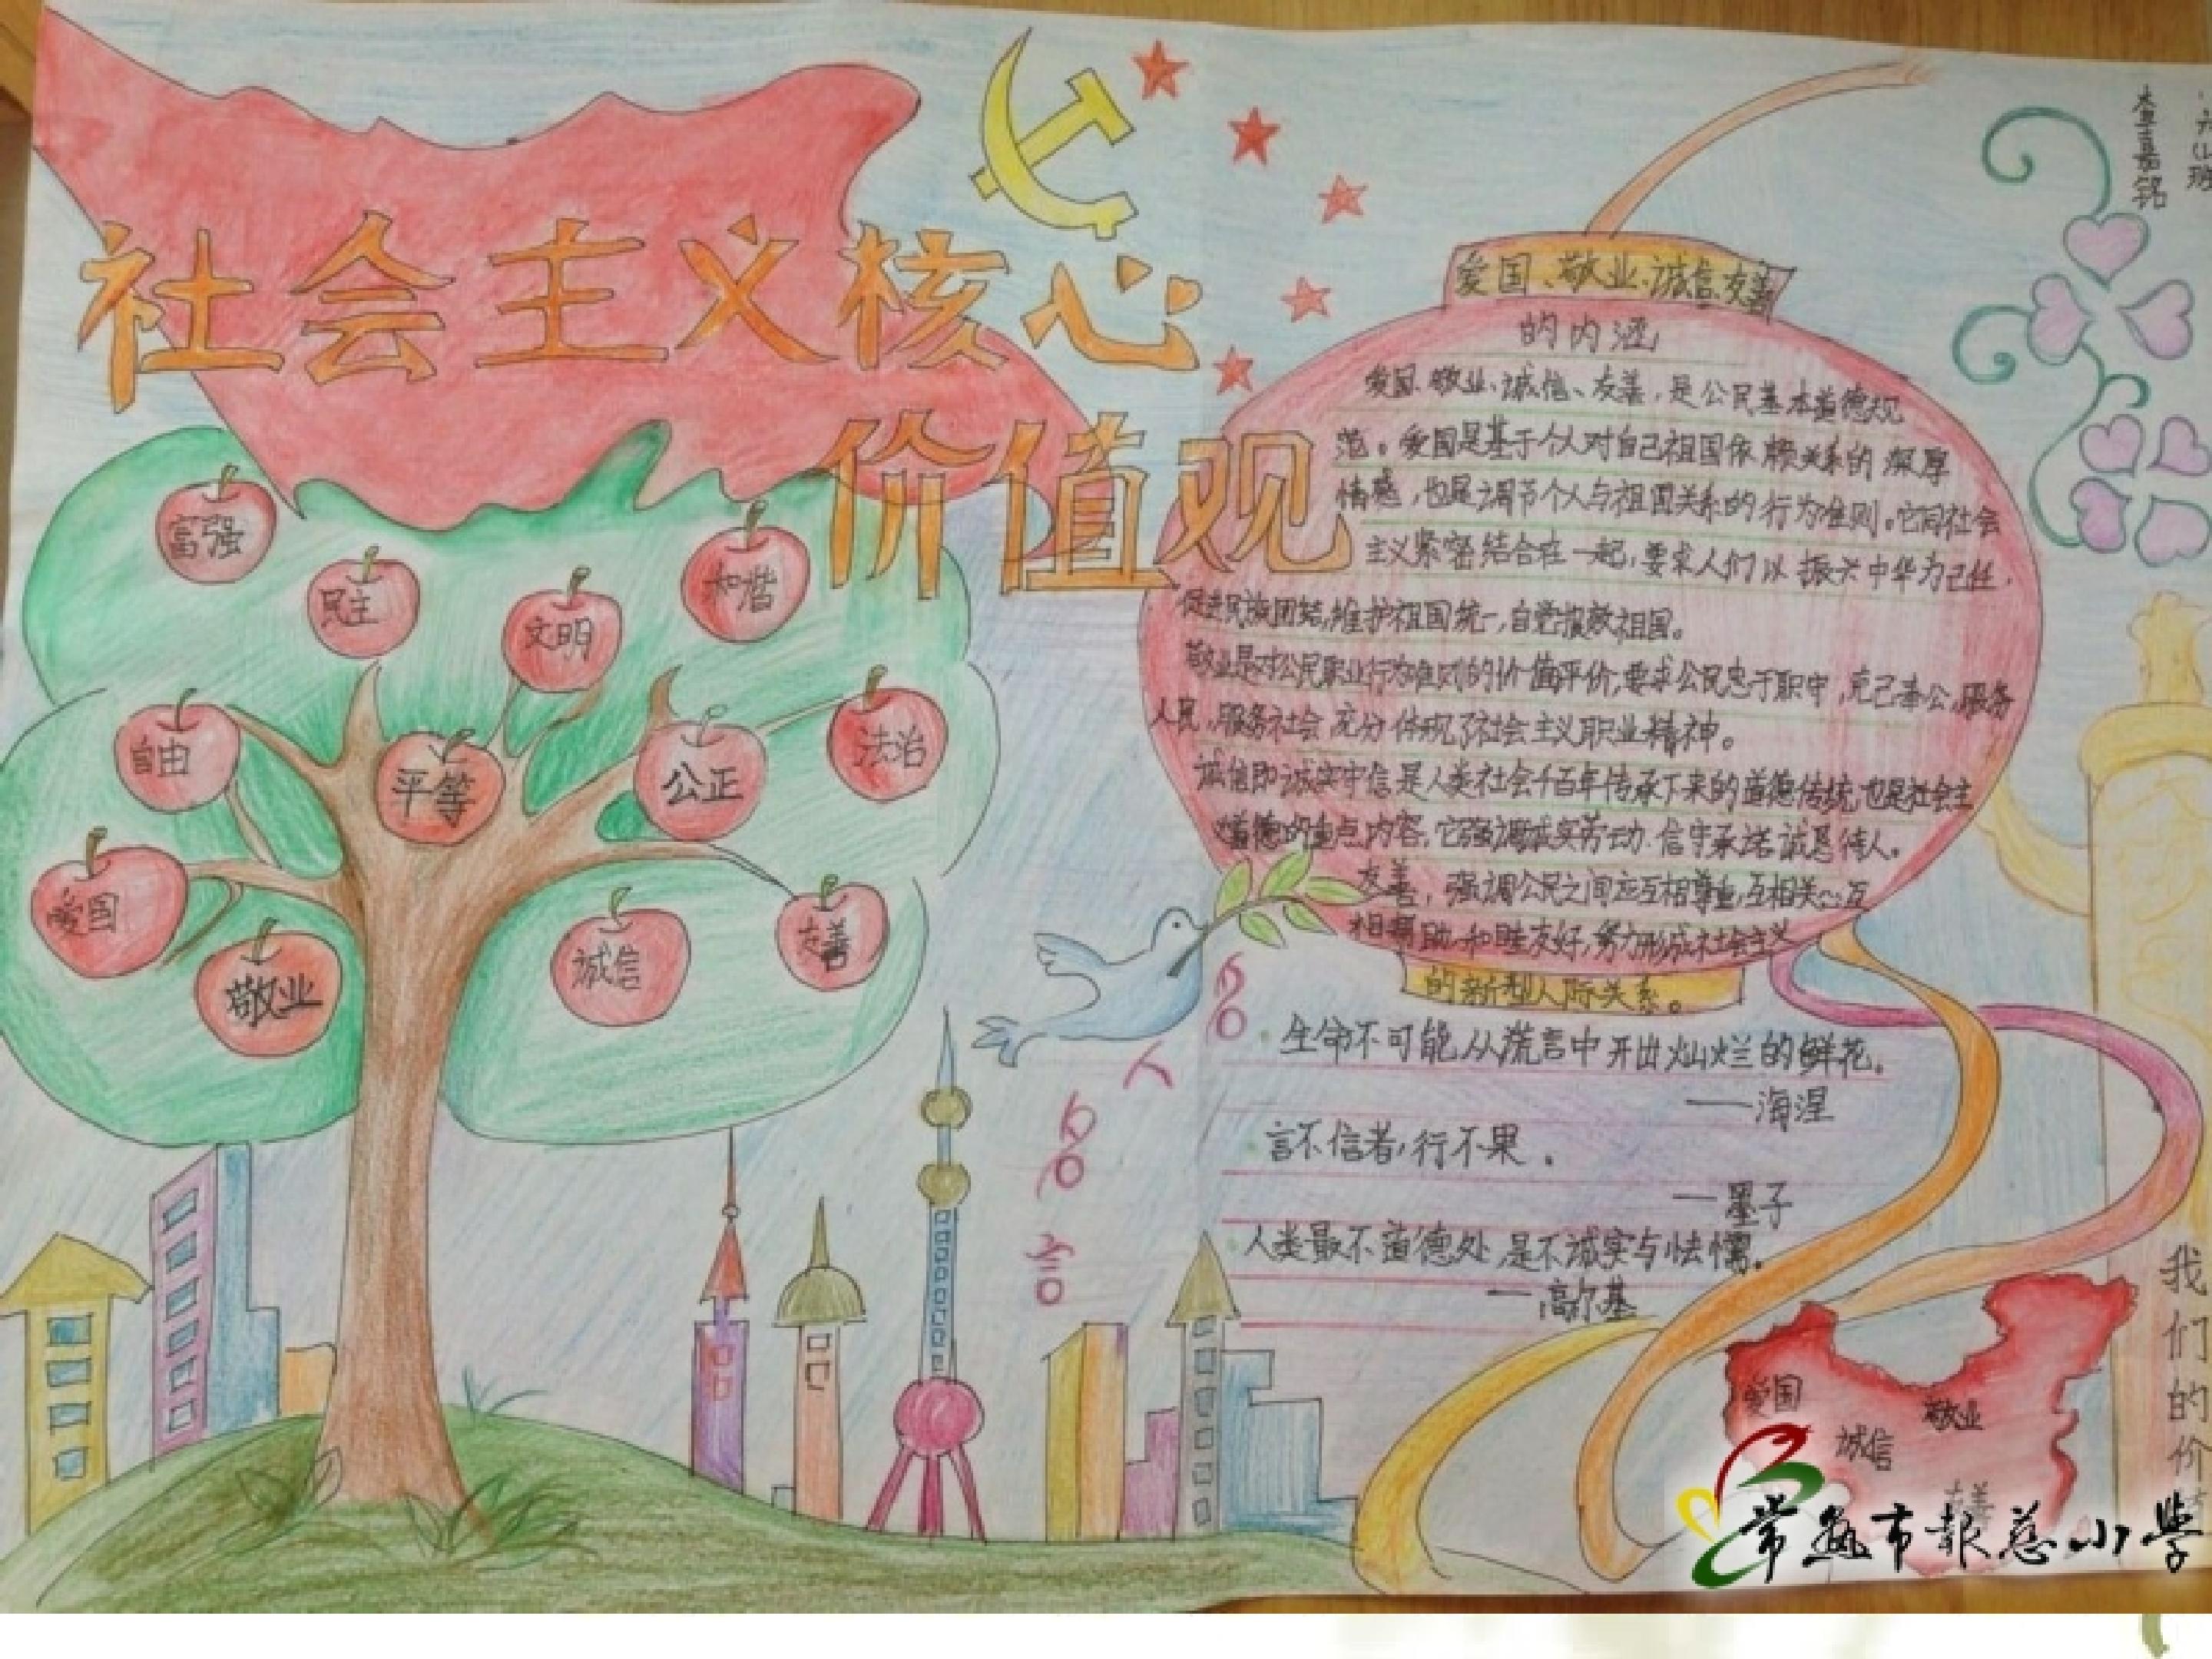 社会主义核心
价值观
富强
民主
文明
和谐
自由
平等
公正
法治
爱国
敬业
诚信
友善
爱国、敬业、诚信、友善
的内涵
爱国、敬业、诚信、友善，是公民基本道德规
范。爱国是基于个人对自己祖国依赖关系的深厚
情感，也是调节个人与祖国关系的行为准则。它同社会
主义紧密结合在一起，要求人们以振兴中华为己任，
促进民族团结，维护祖国统一，自觉报效祖国。
敬业是对公民职业行为准则的价值评价，要求公民忠于职守，克己奉公，服务
人民，服务社会，充分体现了社会主义职业精神。
诚信即诚实守信，是人类社会千百年传承下来的道德传统，也是社会主
义道德的重点内容，它强调诚实劳动、信守承诺、诚恳待人。
友善，强调公民之间应互相尊重，互相关心，互
相帮助，和睦友好，努力形成社会主义
的新型人际关系。
名人名言
生命不可能从谎言中开出灿烂的鲜花。
——海涅
言不信者，行不果．
—墨子
人类最不道德处，是不诚实与怯懦。
—高尔基
六(1)班
查嘉铭
爱国
敬业
诚信
友善
我们的价
常熟市报慈小学